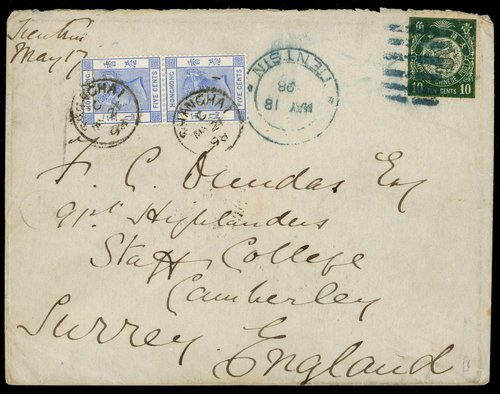 Tientsin
May 17
HONGKONG
FIVE CENTS
HONGKONG
FIVE CENTS
SHANGHAI
SHANGHAI
TIENTSIN
MAY
18
98
10 TEN CENTS 10
F. C. Dundas Esq
91st Highlanders
Staff College
Camberley
Surrey England